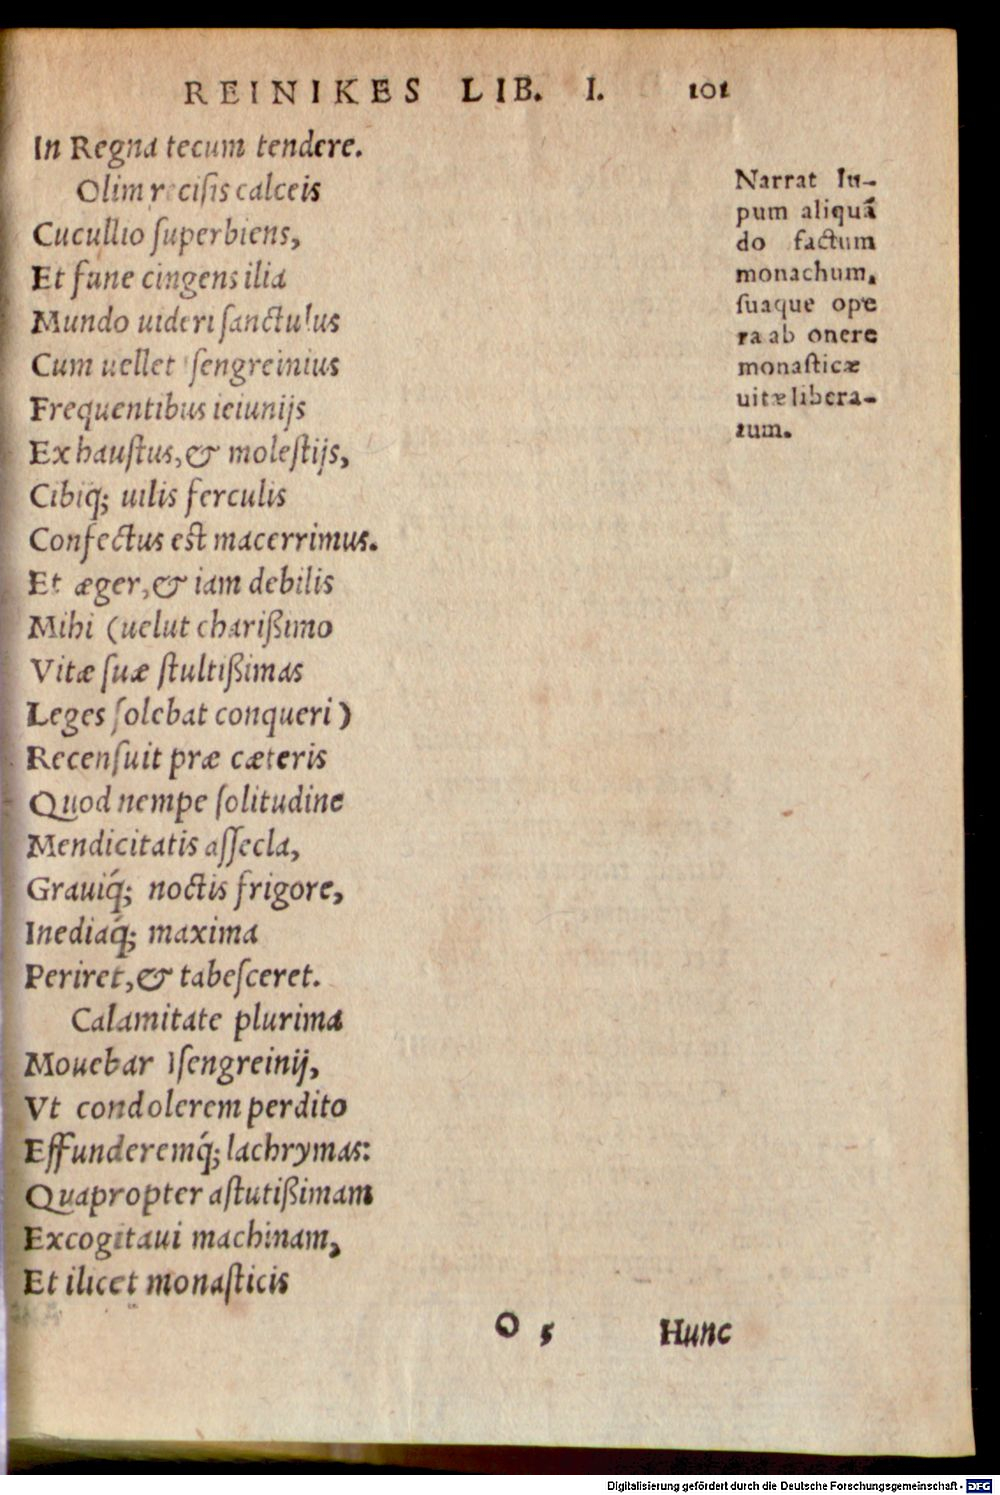 REINIKES LIB. I. 101
In Regna tecum tendere.
Olim recisis calceis
Cucullio ſuperbiens,
Et fune cingens ilia
Mundo uideri ſanctulus
Cum uellet Iſengreinius
Frequentibus ieiunijs
Exhauſtus, & moleſtijs,
Cibiq́; uilis ferculis
Confectus est macerrimus.
Et æger, & iam debilis
Mihi (uelut charißimo
Vitæ ſuæ ſtultißimas
Leges ſolebat conqueri)
Recenſuit præ cæteris
Quod nempe ſolitudine
Mendicitatis aſſecla,
Grauiq́; noctis frigore,
Inediaq́; maxima
Periret, & tabeſceret.
Calamitate plurima
Mouebar Iſengreinij,
Vt condolerem perdito
Effunderemq́; lachrymas:
Quapropter aſtutißimam
Excogitaui machinam,
Et ilicet monaſticis
Narrat lu-
pum aliquā
do factum
monachum,
ſuaque ope
ra ab onere
monaſticæ
uitæ libera-
tum.
O 5 Hunc
Digitalisierung gefördert durch die Deutsche Forschungsgemeinschaft - DFG